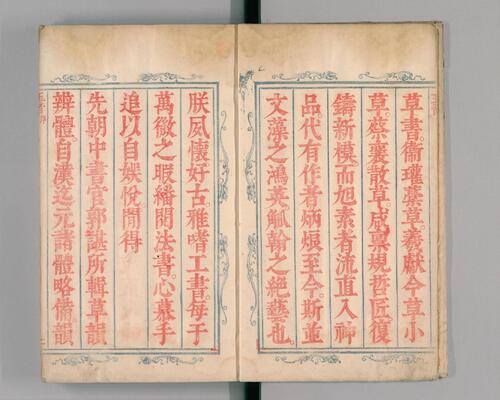 草書。衞瓘藁草。羲獻今草。小
草。蔡襄散草。咸稟規哲匠。復
鑄新模。而旭素者流。直入神
品。代有作者。炳烺至今。斯並
文藻之鴻英。觚翰之絕藝也。
朕夙懷好古。雅嗜工書。每于
萬微之暇。繙閱法書。心慕手
追。以自娛悅。閒得
先朝中書官郭諶所輯草韻
辨體。自漢迄元。諸體略備。韻